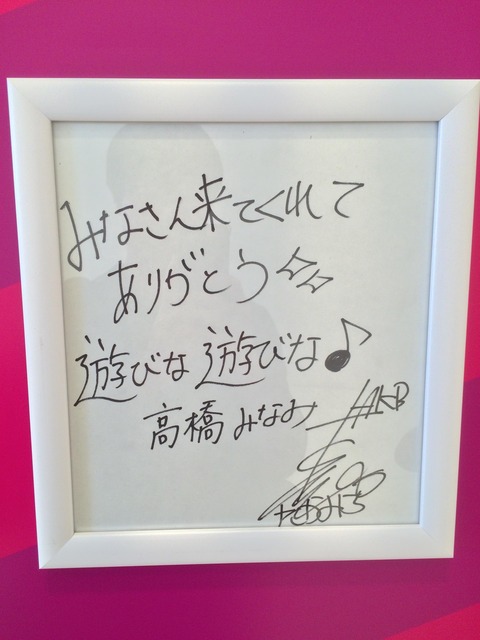 みなさん来てくれて
ありがとう
遊びな遊びな♪
高橋みなみ
AKB
たかみな